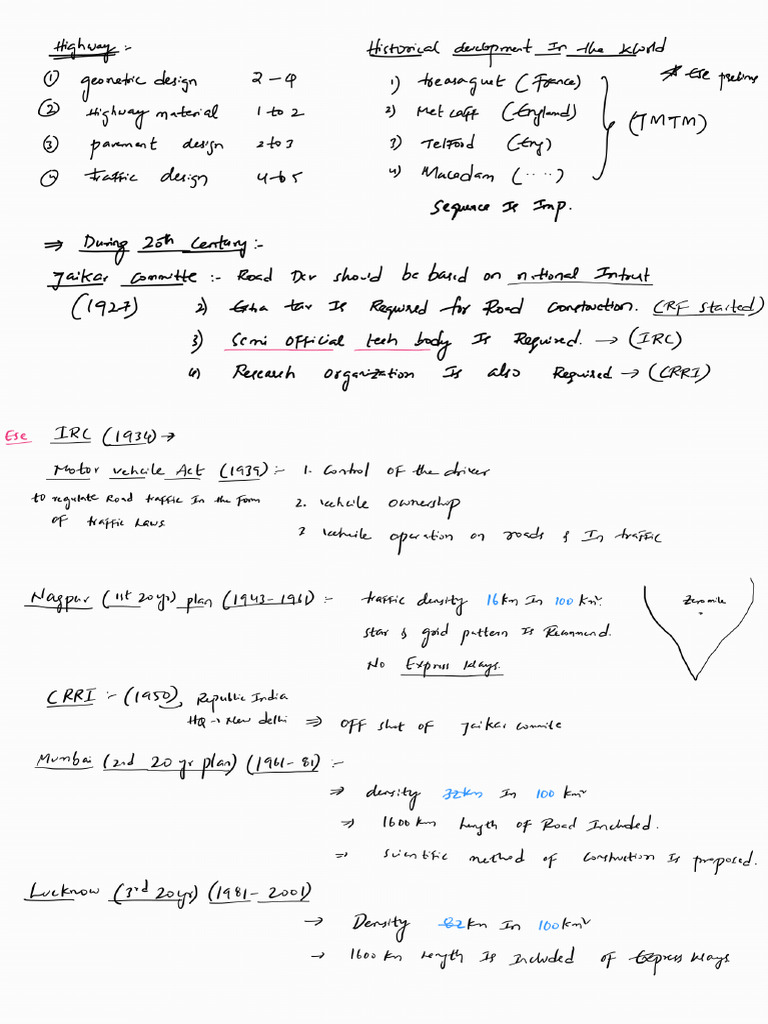 Highway :-
① geometric design 2 - 4
② Highway material 1 to 2
③ pavement design 2 to 3
④ traffic design 4 to 5
Historical development In the World
* Ese prelims
1) treasaguet (France)
2) Metcalf (England)
3) Telford (Eng)
4) Macedam (....)
(TMTM)
Sequence Is Imp.
⇒ During 20th Century :-
Jaikar Committe :- Road Dev should be based on national Intrest
(1927) 2) Extra tax Is Required for Road Construction. (CRF started)
3) Semi official tech body Is Required. → (IRC)
4) Research organization Is also Required → (CRRI)
Ese IRC (1934) →
Motor vehcile Act (1939) :- 1. Control of the driver
to regulate Road traffic In the Form
of traffic Laws
2. vehcile ownership
3 vehcile operation on roads & In traffic
Nagpur (1st 20 yr) plan (1943-1961) :- traffic density 16 km In 100 km².
star & grid pattern Is Recommend.
No Express Ways.
Zero mile
CRRI :- (1950), Republic India
HQ → New delhi ⇒ OFF shot of Jaikar commite
Mumbai (2nd 20 yr plan) (1961-81) :-
⇒ density 32km In 100 km²
⇒ 1600 km length of Road Included.
⇒ scientific method of construction Is proposed.
Lucknow (3rd 20yr) (1981-2001)
→ Density 82km In 100km²
→ 1600 Km length Is Included of Express Ways